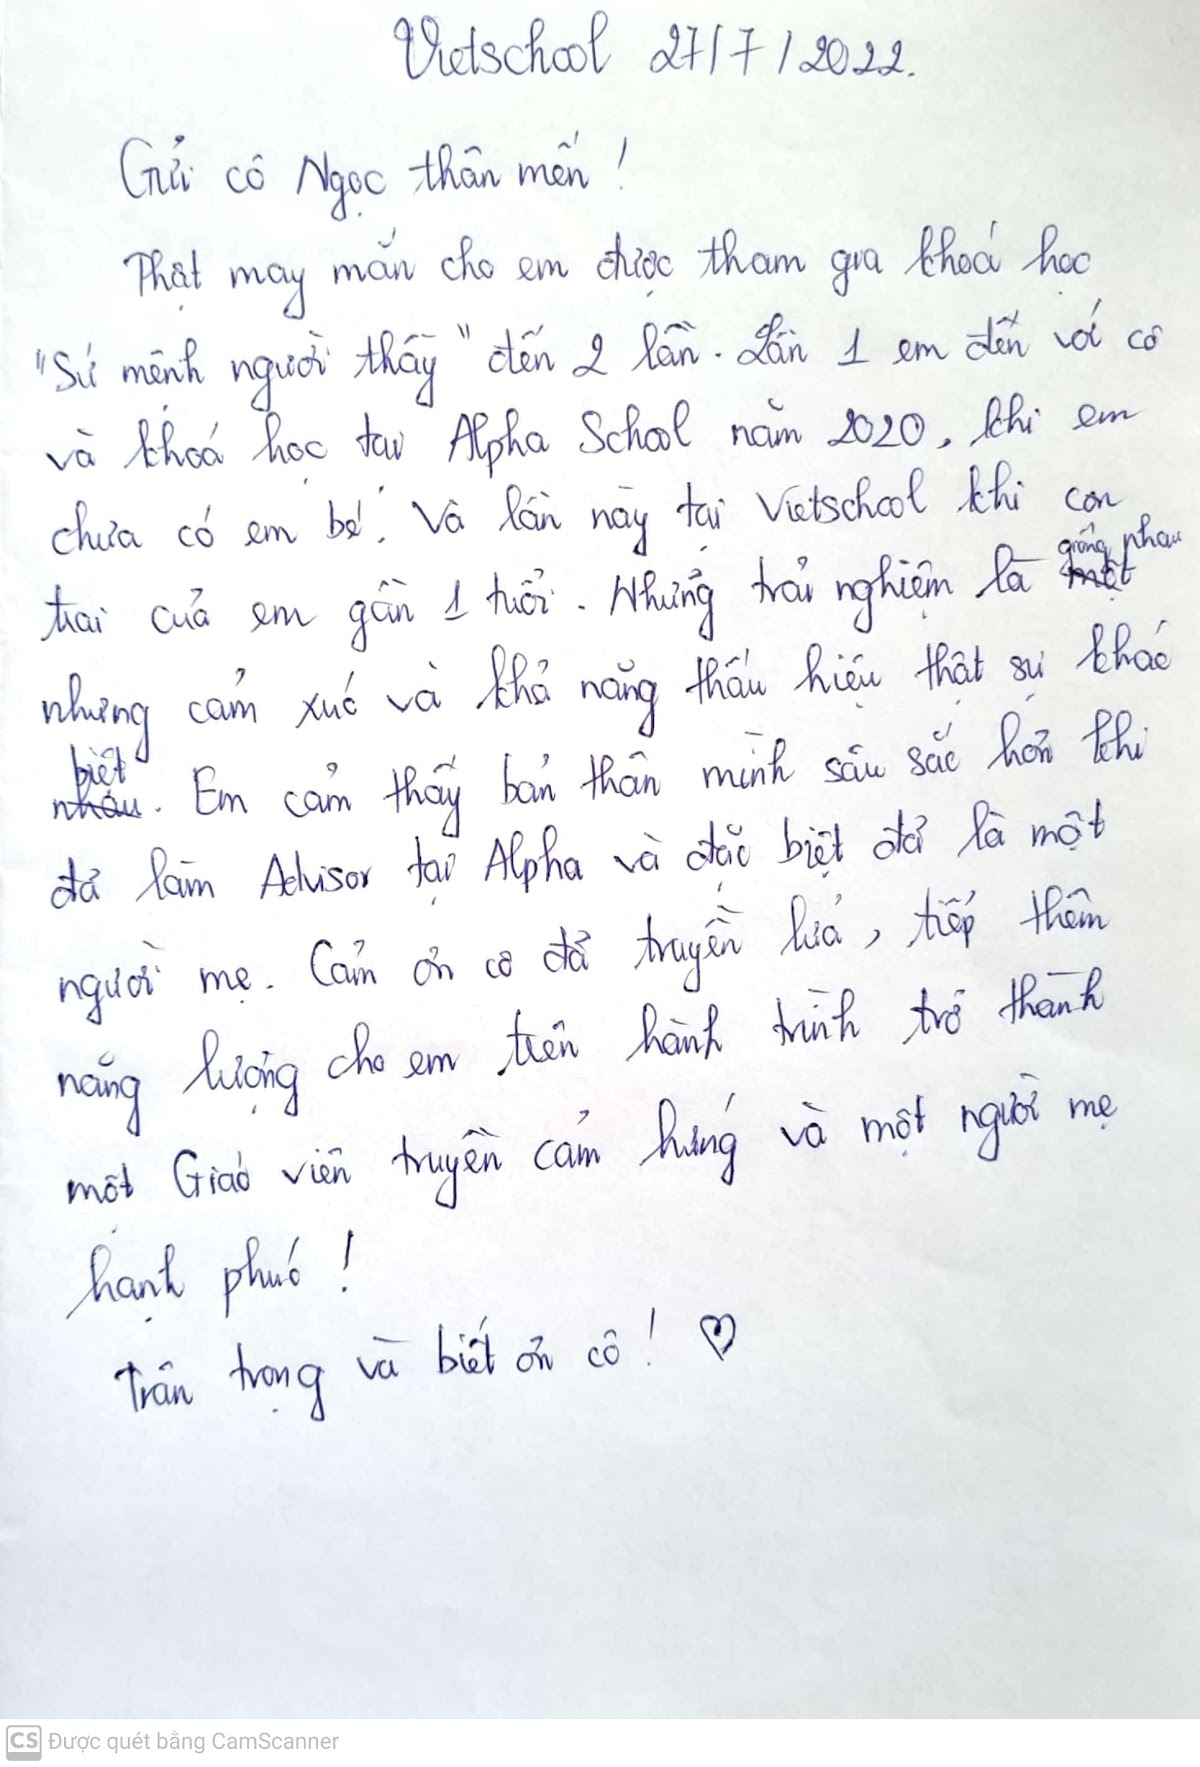 Vietschool 27/7/2022.
Gửi cô Ngọc thân mến!
Thật may mắn cho em được tham gia khoá học
"Sứ mệnh người thầy" đến 2 lần. Lần 1 em đến với cô
và khoá học tại Alpha School năm 2020, khi em
chưa có em bé. Và lần này tại Vietschool khi con
trai của em gần 1 tuổi. Những trải nghiệm là giống nhau
nhưng cảm xúc và khả năng thấu hiểu thật sự khác
biệt. Em cảm thấy bản thân mình sâu sắc hơn khi
đã làm Advisor tại Alpha và đặc biệt đã là một
người mẹ. Cảm ơn cô đã truyền lửa, tiếp thêm
năng lượng cho em trên hành trình trở thành
một Giáo viên truyền cảm hứng và một người mẹ
hạnh phúc!
Trân trọng và biết ơn cô! ♡
CS Được quét bằng CamScanner